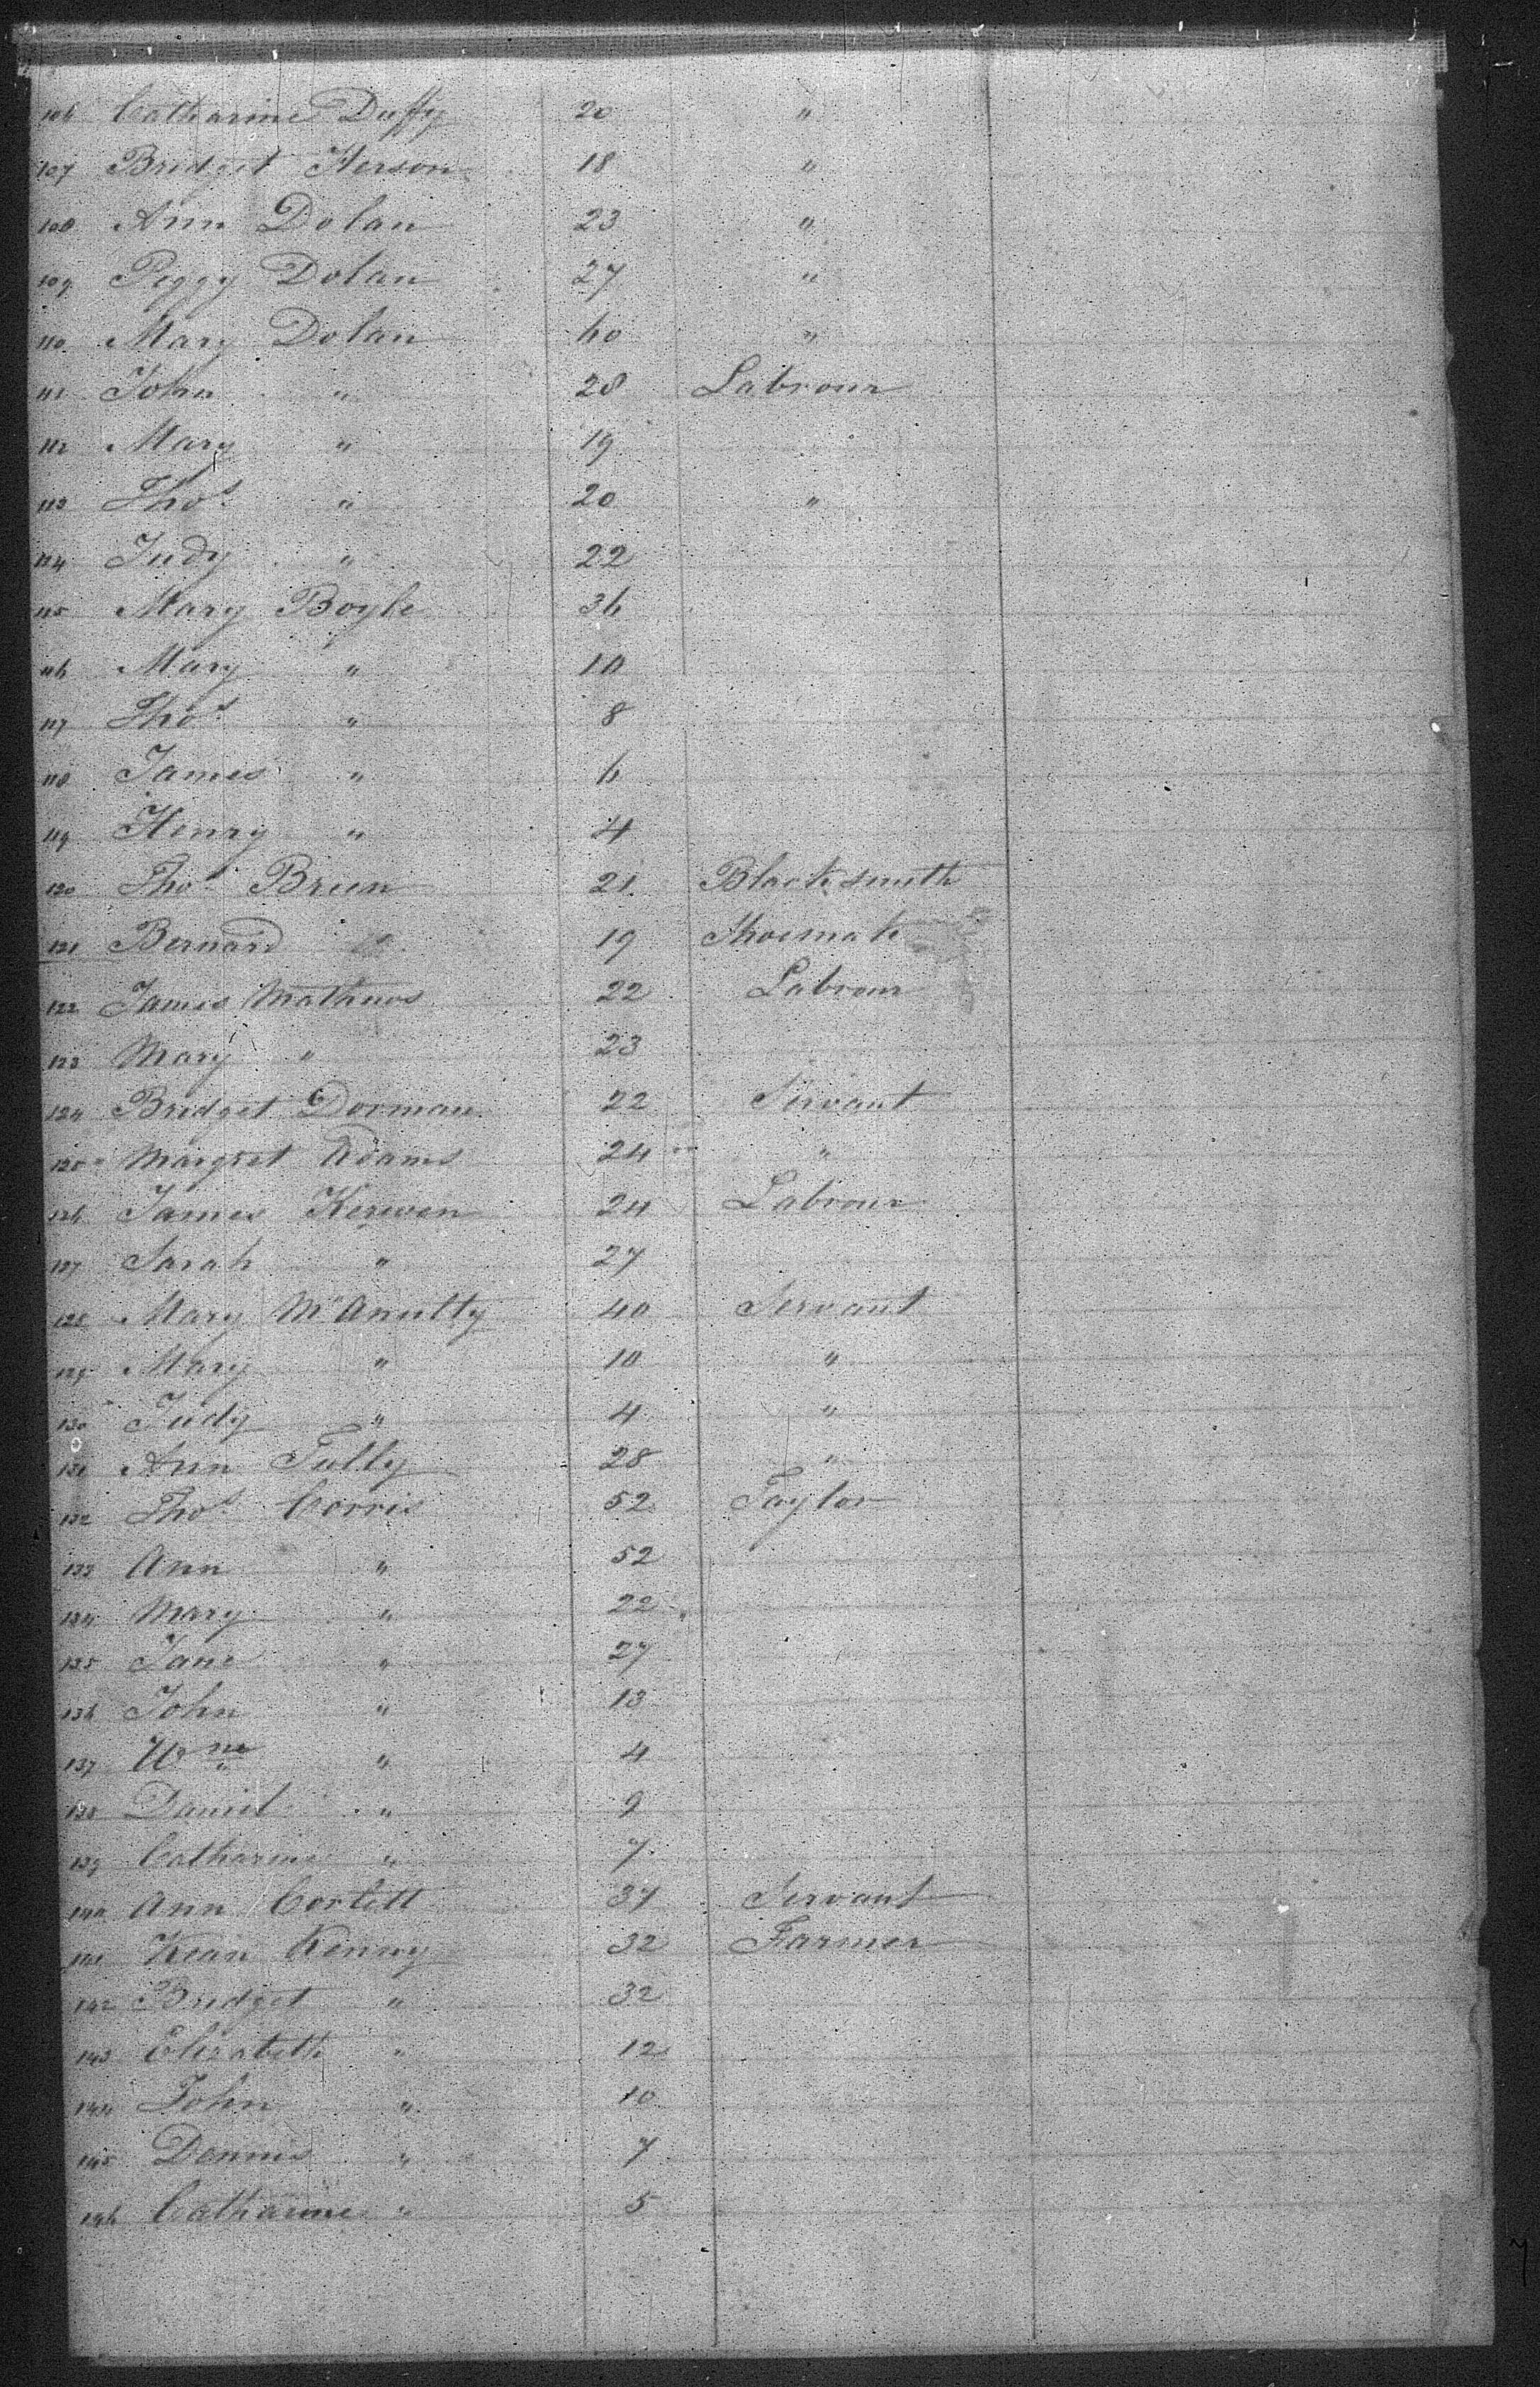 106 Catharine Duffy 20 "
107 Bridget Herson 18 "
108 Ann Dolan 23 "
109 Peggy Dolan 27 "
110 Mary Dolan 60 "
111 John " 28 Labrour
112 Mary " 19
113 Thos " 20 "
114 Judy " 22
115 Mary Boyle 36
116 Mary " 10
117 Thos " 8
118 James " 6
119 Henry " 4
120 Thos Breen 21 Blacksmith
121 Bernard 19
122 James Mathews 22 Labrour
123 Mary " 23
124 Bridget Dorman 22 Servant
125 Margret Adams 24 "
126 James Kerwen 24 Labrour
127 Sarah " 27
128 Mary McAnulty 40 Servant
129 Mary " 10 "
130 Judy " 4 "
131 Ann Tully 28 "
132 Thos Corris 52 Taylor
133 Ann " 52
134 Mary " 22
135 Jane " 27
136 John " 13
137 Wm " 4
138 Daniel " 9
139 Catharine " 7
140 Ann Corlett 37 Servant
141 Kean Kenny 32 Farmer
142 Bridget " 32
143 Elizabeth " 12
144 John " 10
145 Dennis " 7
146 Catharine " 5